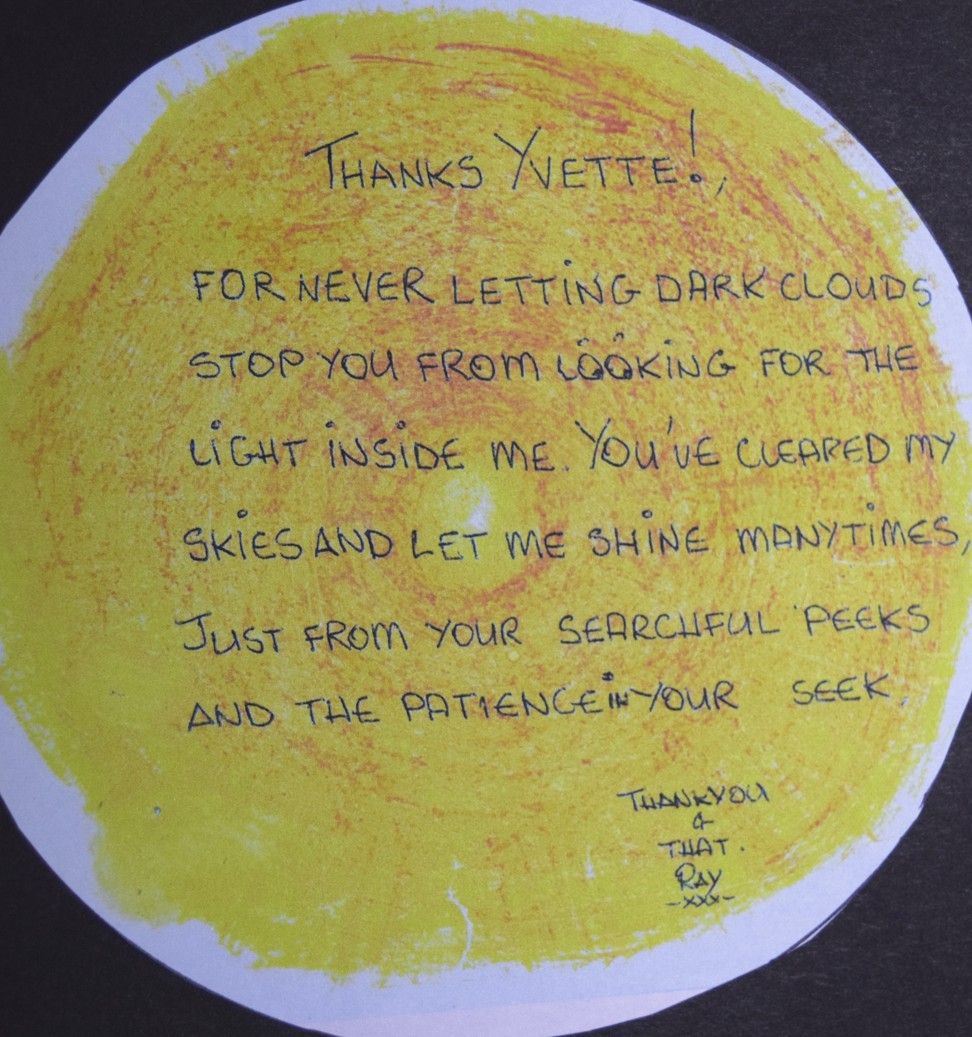 THANKS YVETTE!,
FOR NEVER LETTING DARK CLOUDS
STOP YOU FROM LOOKING FOR THE
LIGHT INSIDE ME. YOU'VE CLEARED MY
SKIES AND LET ME SHINE MANY TIMES,
JUST FROM YOUR SEARCHFUL PEEKS
AND THE PATIENCE IN YOUR SEEK.
THANKYOU
&
THAT.
RAY
-xxx-